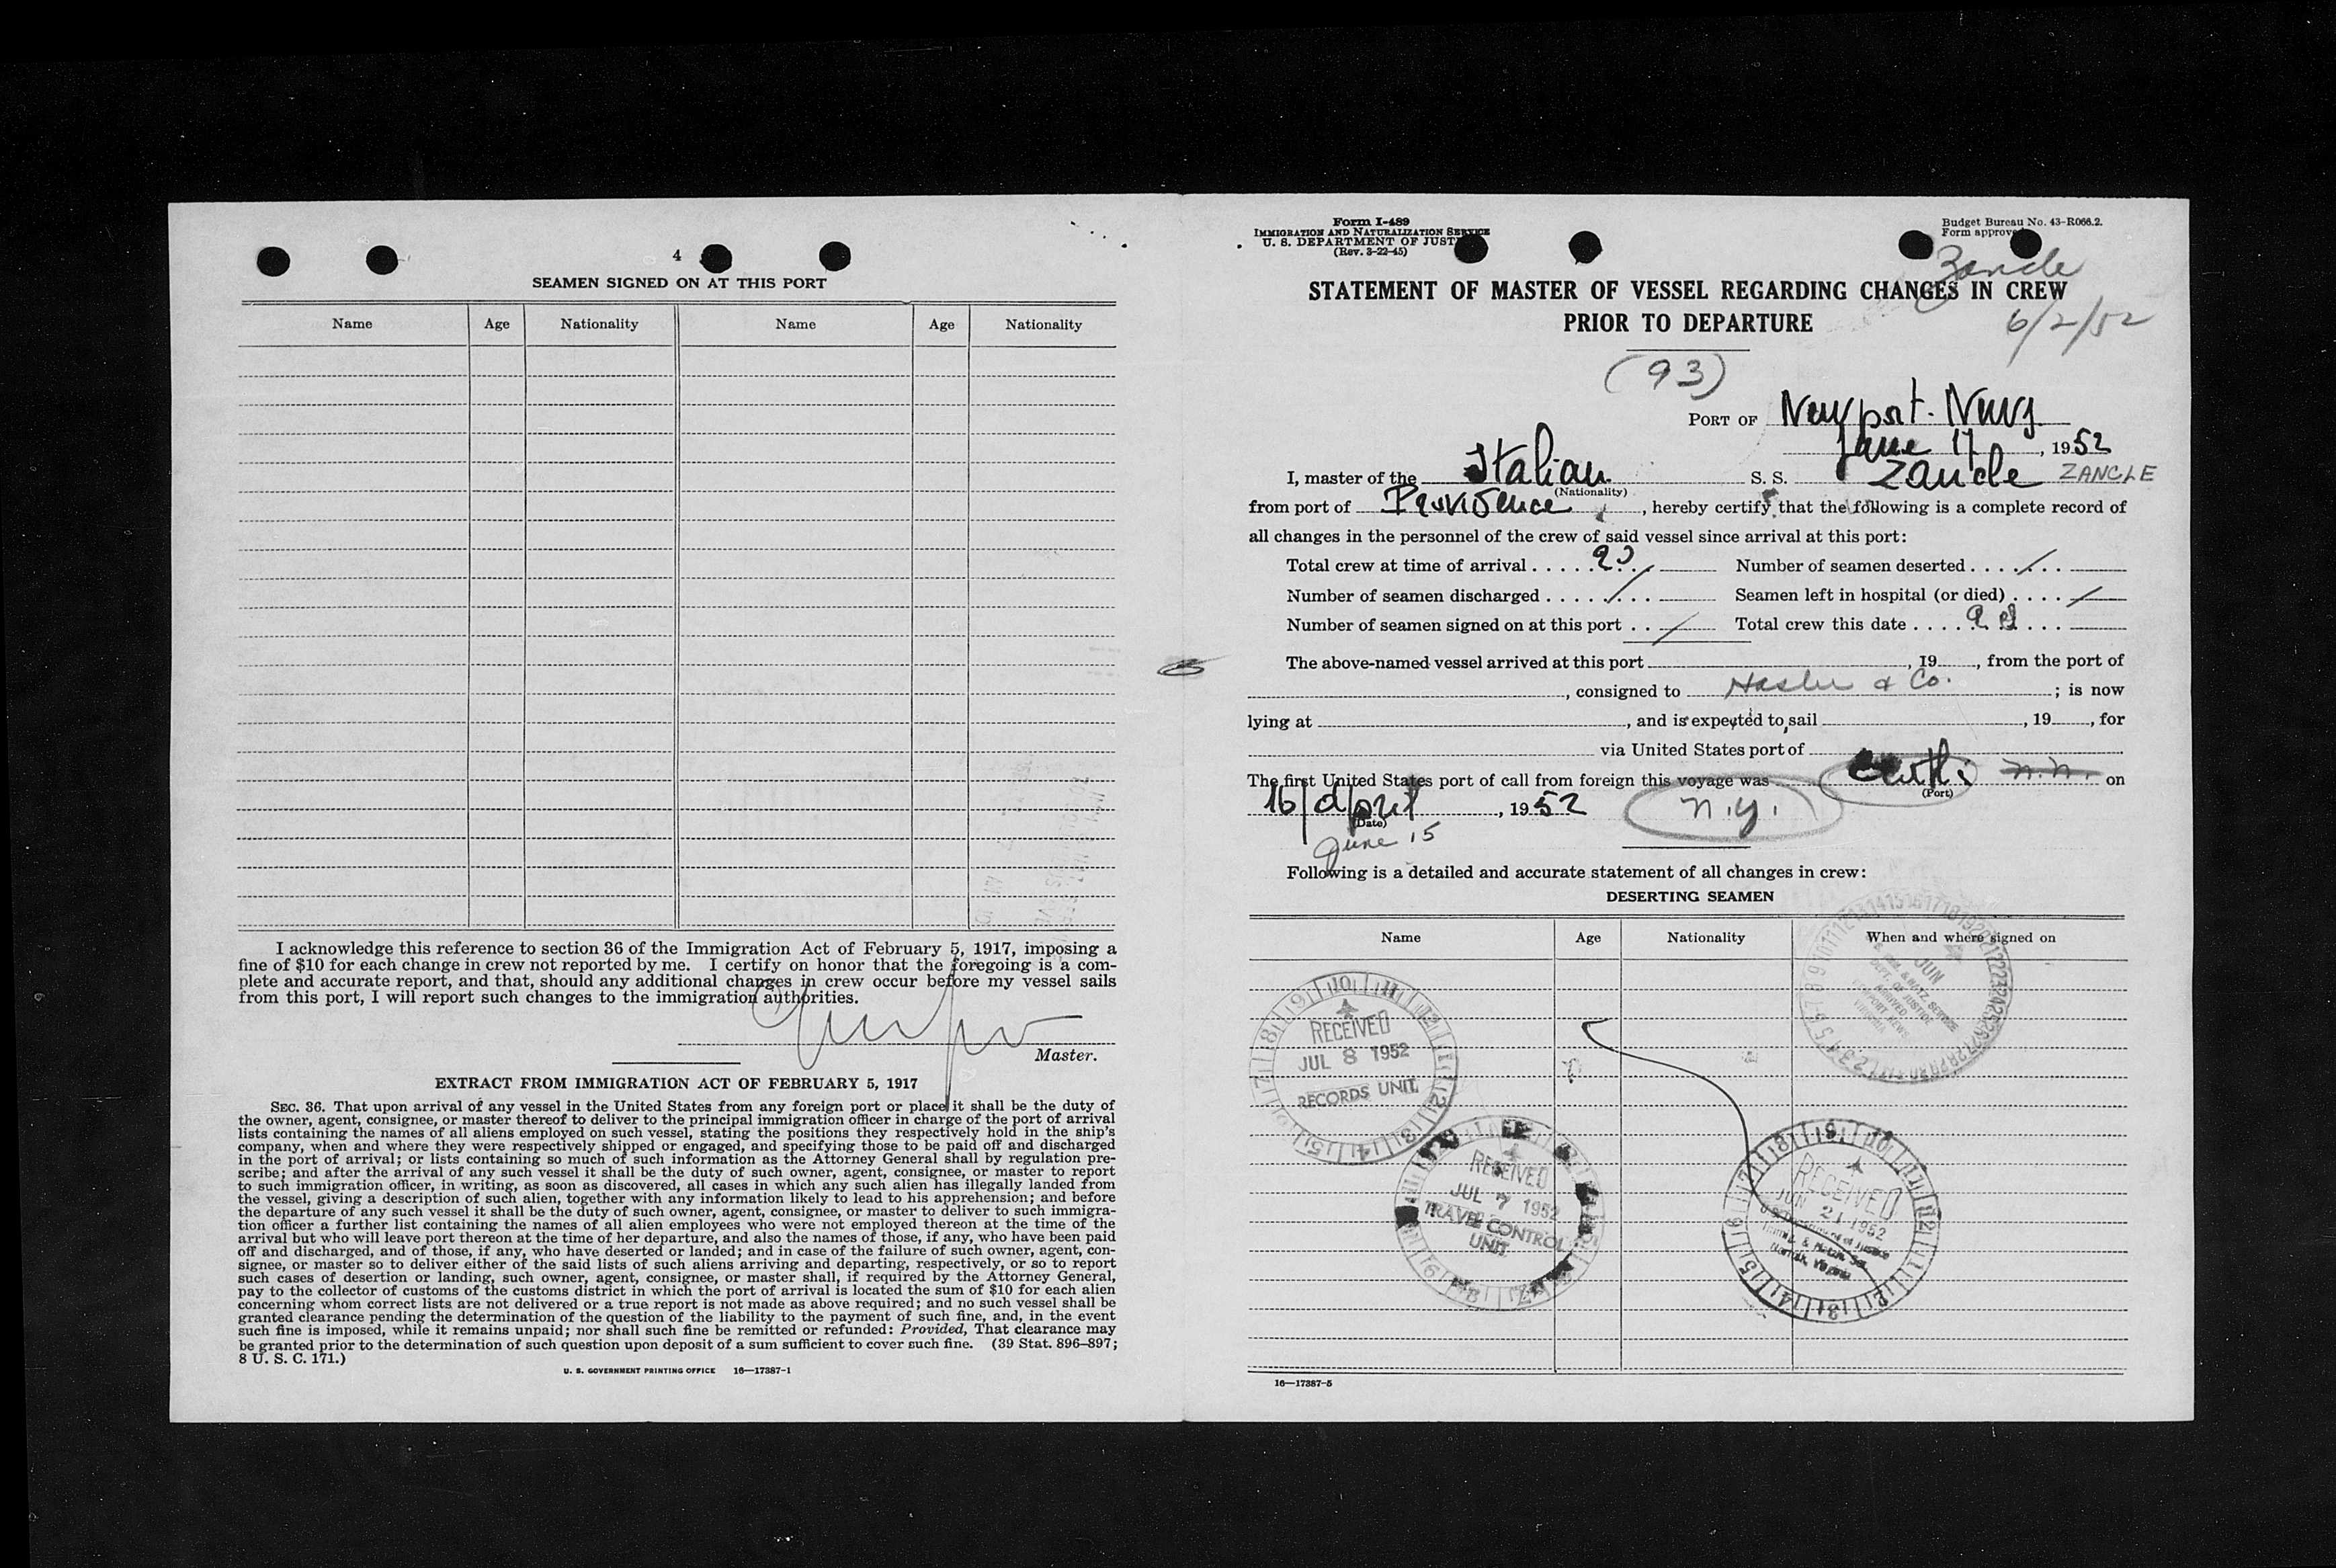 4
SEAMEN SIGNED ON AT THIS PORT
Name Age Nationality Name Age Nationality
I acknowledge this reference to section 36 of the Immigration Act of February 5, 1917, imposing a
fine of $10 for each change in crew not reported by me. I certify on honor that the foregoing is a com-
plete and accurate report, and that, should any additional changes in crew occur before my vessel sails
from this port, I will report such changes to the immigration authorities.
Master.
EXTRACT FROM IMMIGRATION ACT OF FEBRUARY 5, 1917
SEC. 36. That upon arrival of any vessel in the United States from any foreign port or place it shall be the duty of
the owner, agent, consignee, or master thereof to deliver to the principal immigration officer in charge of the port of arrival
lists containing the names of all aliens employed on such vessel, stating the positions they respectively hold in the ship's
company, when and where they were respectively shipped or engaged, and specifying those to be paid off and discharged
in the port of arrival; or lists containing so much of such information as the Attorney General shall by regulation pre-
scribe; and after the arrival of any such vessel it shall be the duty of such owner, agent, consignee, or master to report
to such immigration officer, in writing, as soon as discovered, all cases in which any such alien has illegally landed from
the vessel, giving a description of such alien, together with any information likely to lead to his apprehension; and before
the departure of any such vessel it shall be the duty of such owner, agent, consignee, or master to deliver to such immigra-
tion officer a further list containing the names of all alien employees who were not employed thereon at the time of the
arrival but who will leave port thereon at the time of her departure, and also the names of those, if any, who have been paid
off and discharged, and of those, if any, who have deserted or landed; and in case of the failure of such owner, agent, con-
signee, or master so to deliver either of the said lists of such aliens arriving and departing, respectively, or so to report
such cases of desertion or landing, such owner, agent, consignee, or master shall, if required by the Attorney General,
pay to the collector of customs of the customs district in which the port of arrival is located the sum of $10 for each alien
concerning whom correct lists are not delivered or a true report is not made as above required; and no such vessel shall be
granted clearance pending the determination of the question of the liability to the payment of such fine, and, in the event
such fine is imposed, while it remains unpaid; nor shall such fine be remitted or refunded: Provided, That clearance may
be granted prior to the determination of such question upon deposit of a sum sufficient to cover such fine. (39 Stat. 896-897;
8 U. S. C. 171.)
U. S. GOVERNMENT PRINTING OFFICE 16—17387-1
Form I-489
IMMIGRATION AND NATURALIZATION SERVICE
U. S. DEPARTMENT OF JUST
(Rev. 3-22-45)
Budget Bureau No. 43-R066.2.
Form approve
Zancle
STATEMENT OF MASTER OF VESSEL REGARDING CHANGES IN CREW
PRIOR TO DEPARTURE
6/2/52
(93)
PORT OF Newport-News
June 17, 1952
I, master of the Italian S. S. Zancle ZANCLE
(Nationality)
from port of Providence, hereby certify that the following is a complete record of
all changes in the personnel of the crew of said vessel since arrival at this port:
Total crew at time of arrival Number of seamen deserted /
Number of seamen discharged / Seamen left in hospital (or died) /
Number of seamen signed on at this port / Total crew this date
The above-named vessel arrived at this port , 19 , from the port of
, consigned to Hasler & Co. ; is now
lying at , and is expected to sail , 19 , for
via United States port of
The first United States port of call from foreign this voyage was n.n. on
(Port)
16/April, 1952 n.y.
(Date)
June 15
Following is a detailed and accurate statement of all changes in crew:
DESERTING SEAMEN
Name Age Nationality When and where signed on
RECEIVED
JUL 8 1952
RECORDS UNIT
RECEIVED
JUL 7 1952
TRAVEL CONTROL
UNIT
JUN
ARRIVED
NEWPORT NEWS
VIRGINIA
RECEIVED
JUN 21 1952
Norfolk, Virginia
16—17387-5